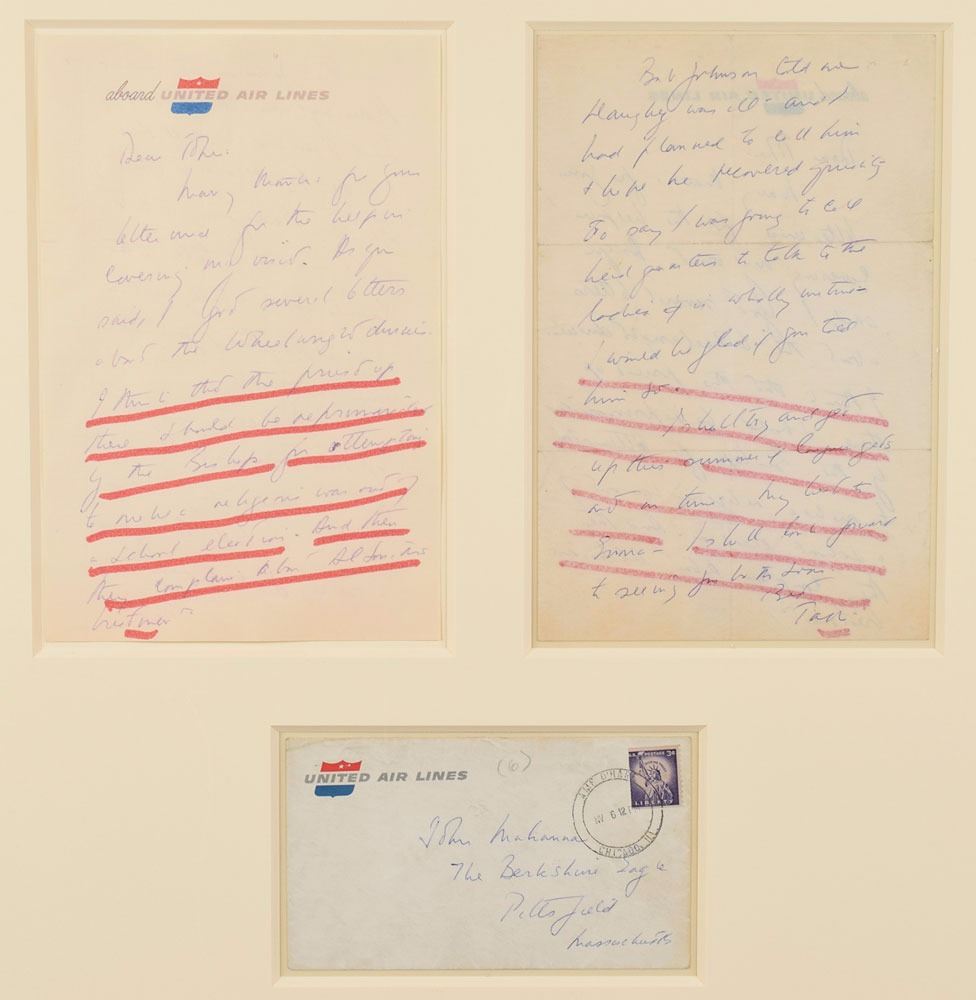 aboard UNITED AIR LINES
Dear John:
Many thanks for your
letter and for the help in
covering my visit. As you
said, I got several letters
about the
I think that the priest up
there should be reprimanded
by the Bishop for attempting
to make a religious war out of
a school election. And then
they complain about
Bob Johnson told me
Haughey was ill - and I
had planned to call him
I hope he recovered quickly
To say I was going to call
headquarters to talk to the
ladies of is wholly untrue
I would be glad if you told
him so.
I shall try and get
up this summer if Congress gets
out on time. My best to
Emma - I shall look forward
to seeing you both soon
Best
UNITED AIR LINES
(6)
U.S. POSTAGE 3¢
LIBERTY
AMF O'HARE
CHICAGO, ILL
John Mahanna
The Berkshire Eagle
Pittsfield
Massachusetts